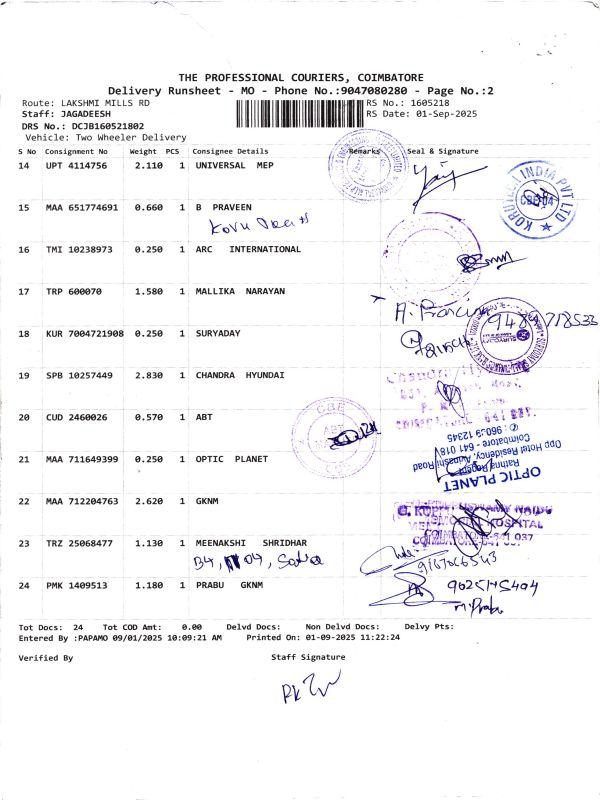 THE PROFESSIONAL COURIERS, COIMBATORE
Delivery Runsheet - MO - Phone No.:9047080280 - Page No.:2
Route: LAKSHMI MILLS RD RS No.: 1605218
Staff: JAGADEESH RS Date: 01-Sep-2025
DRS No.: DCJB160521802
Vehicle: Two Wheeler Delivery
S No Consignment No Weight PCS Consignee Details Remarks Seal & Signature
14 UPT 4114756 2.110 1 UNIVERSAL MEP
KORUMEI INDIA PVT LTD
CBE-04
15 MAA 651774691 0.660 1 B PRAVEEN
16 TMI 10238973 0.250 1 ARC INTERNATIONAL
17 TRP 600070 1.580 1 MALLIKA NARAYAN
18 KUR 7004721908 0.250 1 SURYADAY
19 SPB 10257449 2.830 1 CHANDRA HYUNDAI
20 CUD 2460026 0.570 1 ABT
CBE
ABT
21 MAA 711649399 0.250 1 OPTIC PLANET
OPTIC PLANET
Rathna Regent
Opp Hotel Residency, Avinashi Road
Coimbatore - 641 018
22 MAA 712204763 2.620 1 GKNM
HOSPITAL
COIMBATORE-641 037
23 TRZ 25068477 1.130 1 MEENAKSHI SHRIDHAR
24 PMK 1409513 1.180 1 PRABU GKNM
M. Prabu
Tot Docs: 24 Tot COD Amt: 0.00 Delvd Docs: Non Delvd Docs: Delvy Pts:
Entered By :PAPAMO 09/01/2025 10:09:21 AM Printed On: 01-09-2025 11:22:24
Verified By Staff Signature